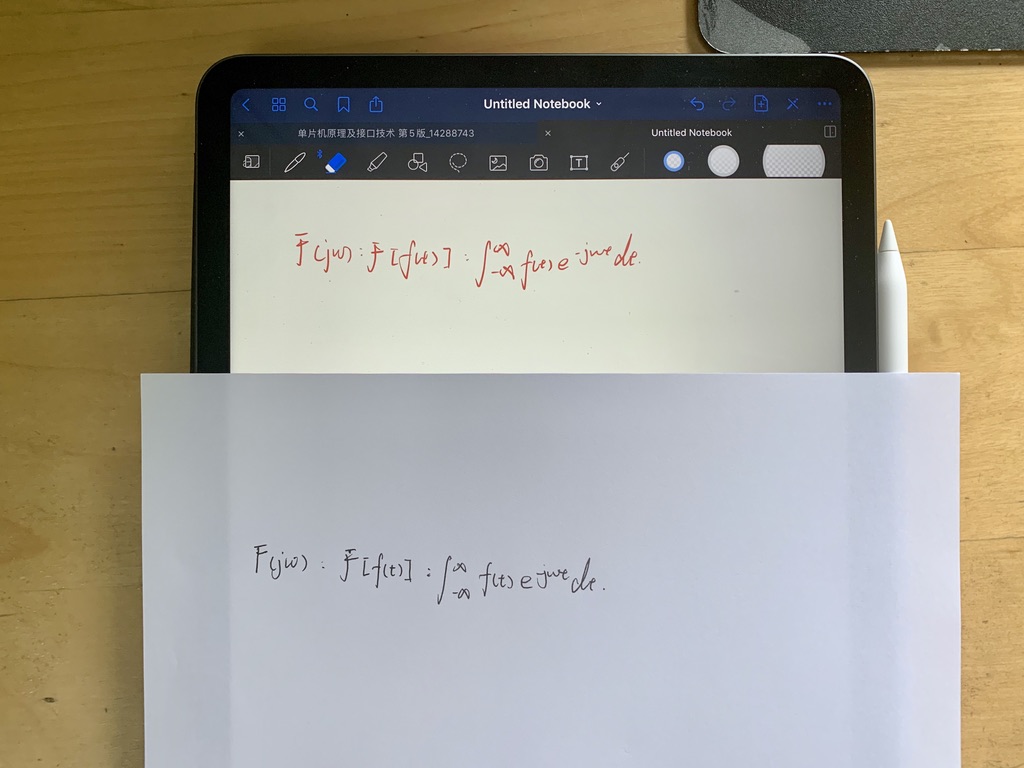 Untitled Notebook
单片机原理及接口技术 第5版_14288743
Untitled Notebook
T
F(jω) : F[f(t)] : ∫_{-∞}^{∞} f(t) e^{-jωt} dt.
F(jω) : F[f(t)] : ∫_{-∞}^{∞} f(t) e^{-jωt} dt.